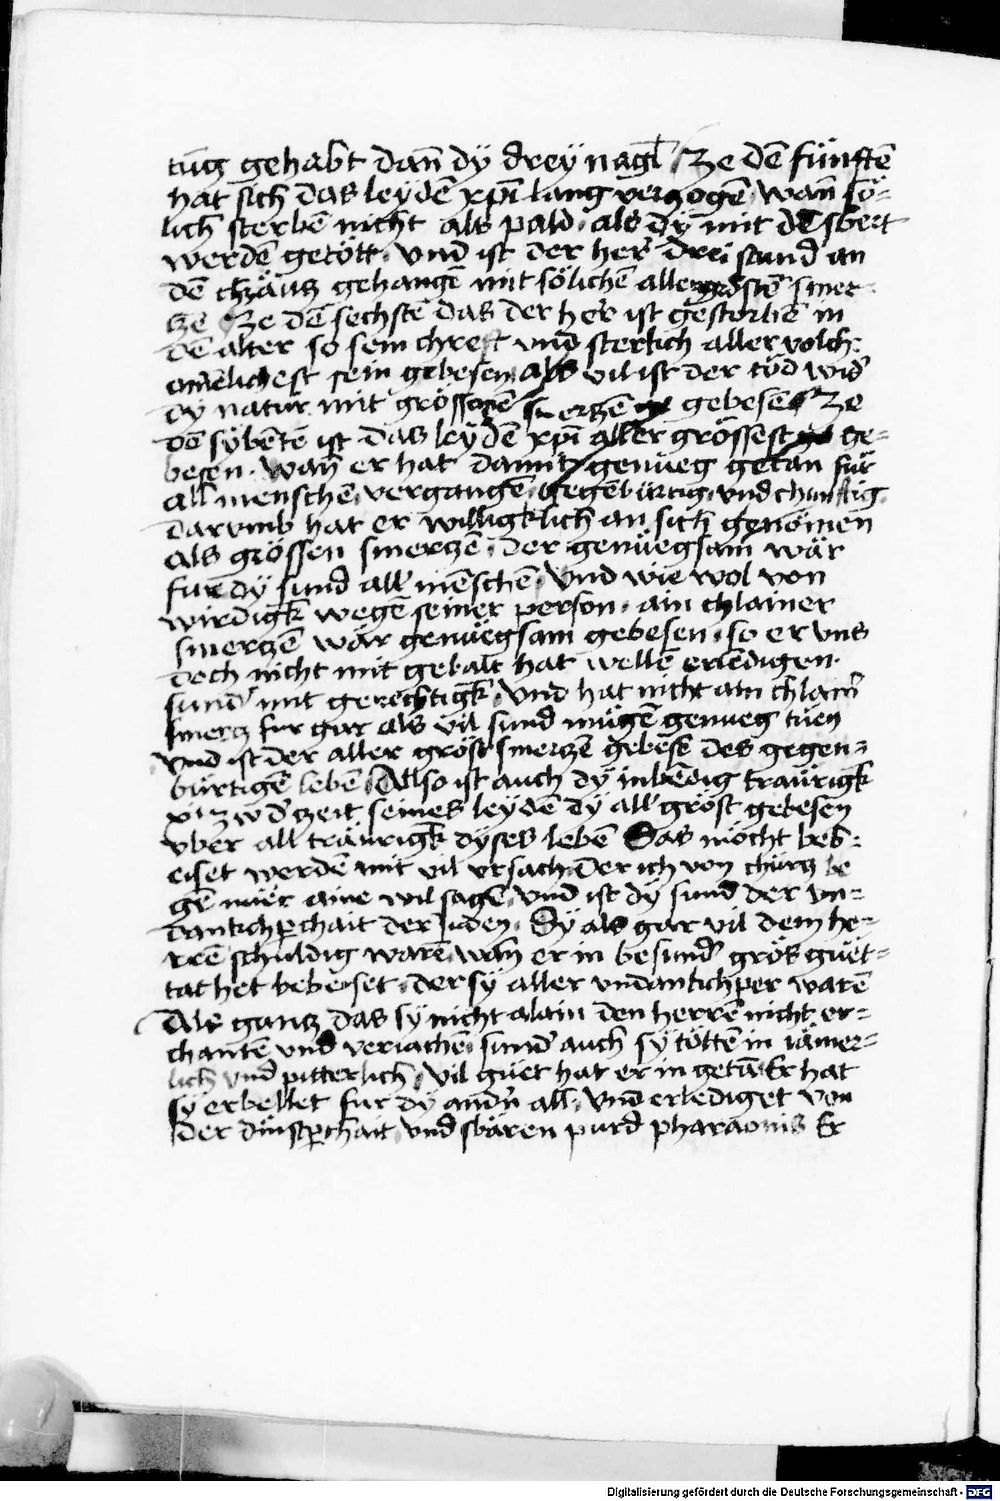 tūg gehabt dan̄ dÿ dreÿ nagl Ze dē fünftē
hat sich das leÿdē xp̄i lang verzogē wan̄ sö-
lich sterbē nicht als pald als dÿ mit dē sbert
werdē getött und ist der her drei stund an
dē chräutz gehangē mit sölichē allergröstē smer-
tzē Ze dē sechstē das der her ist gestorbē in
dē alter so sein chreft und sterkch aller volch-
amēlichest sein gebesen als vil ist der töd wid'
dÿ natur mit grösserē smertzē gebesē Ze
dē sÿbentē ist das leÿdē xp̄i aller grössest ge-
besen wan̄ er hat damit genueg getan für
all menschē vergangē gegēbürtig und chunftig
darumb hat er willigklich an sich genömen
als grössen smertzē der genüegsam wär
fur dÿ sund all mēschē Und wie wol von
wirdigk wegē seiner person ain chlainer
smertzē wär genüegsam gebesen so er uns
doch nicht mit gebalt hat wellē erledigen
sund' mit gerechtigk und hat nicht ain chlain'
smertz fur gar als vil sund mügē genueg tuen
Und ist der aller gröst smertzē gebesē des gegen-
bürtigē lebē Also ist auch dÿ inbēdig traurigk
xp̄i zw d' zeit seines leÿdē dÿ all' gröst gebesen
vber all träurigk dÿses lebē Das möcht beb-
eiset werdē mit vil ursach der ich von chürtz be
gē nuer aine wil sagē Und ist dÿ sund der un-
dankchp̄chait der Juden Dÿ als gar vil dem her-
rē schuldig warē wan̄ er in besund' grös guet-
tat het bebeiset der sÿ aller undankchper warē
Als gantz das sÿ nicht alain den herrē nicht er-
chantē und veriachē sund' auch sÿ töttē in iämer-
lich und pitterlich Vil guet hat er in getā Er hat
sÿ erbellet fur dÿ andn̄ all und erlediget von
der dinstp̄chait und sbären purd pharaonis Er
Digitalisierung gefördert durch die Deutsche Forschungsgemeinschaft - DFG